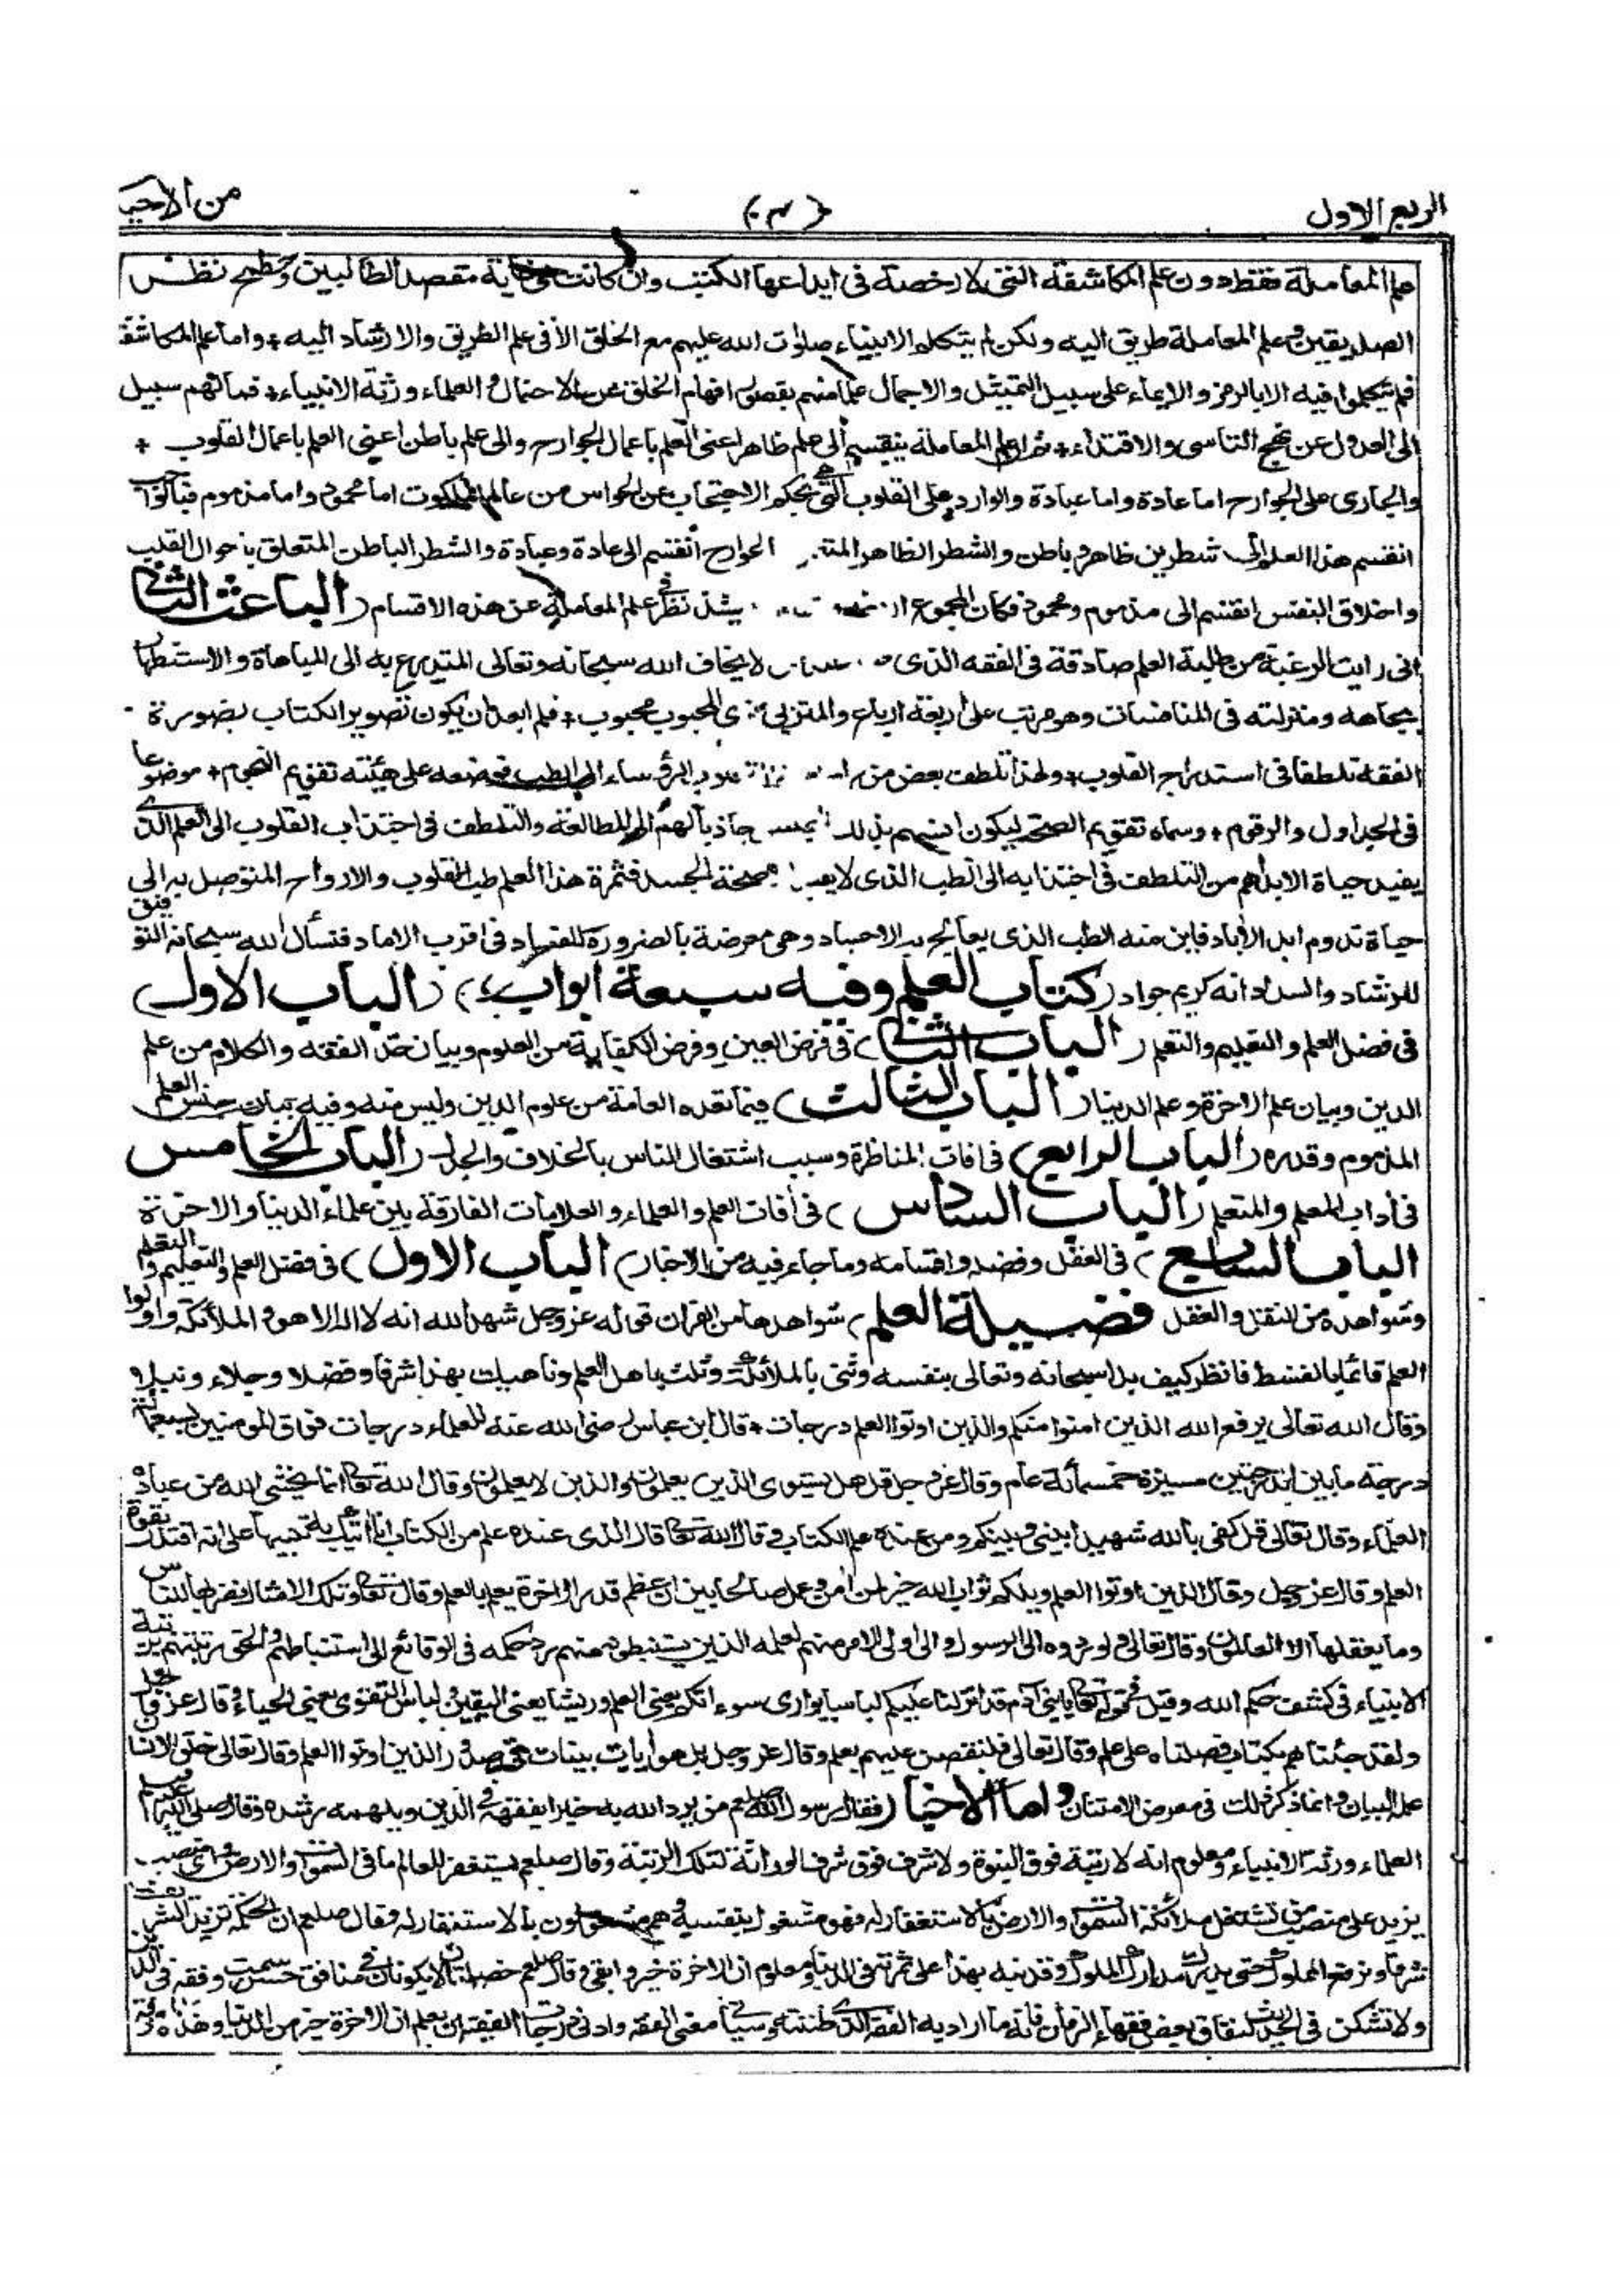 الربع الاول (٣) من الاحيا
علم المعاملة فقط دون علم المكاشفة التى لا رخصة فى ايداعها الكتب وان كانت هى غاية مقصد الطالبين ومطمح نظر
الصديقين وعلم المعاملة طريق اليه ولكن لم يتكلم الانبياء صلوات الله عليهم مع الخلق الا فى علم الطريق والارشاد اليه + واما علم المكاشفة
فلم يتكلموا فيه الا بالرمز والايماء على سبيل التمثيل والاجمال علما منهم بقصور افهام الخلق عن الاحتمال والعلماء ورثة الانبياء + فما لهم سبيل
الى العدول عن نهج التاسى والاقتداء + ثم ان علم المعاملة ينقسم الى علم ظاهر اعنى العلم باعمال الجوارح والى علم باطن اعنى العلم باعمال القلوب +
والجارى على الجوارح اما عادة واما عبادة والوارد على القلوب التى هى بحكم الاحتجاب عن الحواس من عالم الملكوت اما محمود واما مذموم فبالواجب
انقسم هذا العلم الى شطرين ظاهر وباطن والشطر الظاهر الجوارح انقسم الى عادة وعبادة والشطر الباطن المتعلق باحوال القلب
واخلاق النفس انقسم الى مذموم ومحمود فكان المجموع يشذ نظر فى علم المعاملة عن هذه الاقسام (الباعث الثانى
انى رايت الرغبة من طلبة العلم صادقة فى الفقه الذى لا يخاف الله سبحانه وتعالى المتدرع به الى المباهاة والاستظهار
بجاهه ومنزلته فى المنافسات وهو مرتب على اربعة ارباع والمتزيى بزى المحبوب محبوب + فلم ابعد ان يكون تصوير الكتاب بصورة
الفقه تلطفا فى استدراج القلوب + ولهذا تلطف بعض من الرؤساء الى الطب فوضعه على هيئته تقويم النجوم + موضوعا
فى الجداول والرقوم + وسماه تقويم الصحة ليكون انسهم بذلك جاذبا لهم الى المطالعة والتلطف فى اجتذاب القلوب الى العلم الذى
يفيد حياة الابد اهم من التلطف فى اجتذابه الى الطب الذى لا يفيد صحة الجسد فثمرة هذا العلم طب القلوب والارواح المتوصل به الى
حياة تدوم ابد الاباد فاين منه الطب الذى يعالج به الاجساد وهى معرضة بالضرورة للفساد فى اقرب الاماد فنسأل الله سبحانه التوفيق
للرشاد والسداد انه كريم جواد (كتاب العلم وفيه سبعة ابواب) (الباب الاول)
فى فضل العلم والتعليم والتعلم (الباب الثانى) فى فرض العين وفرض الكفاية من العلوم وبيان حد الفقه والكلام من علم
الدين وبيان علم الاخرة وعلم الدنيا (الباب الثالث) فيما تعده العامة من علوم الدين وليس منه وفيه بيان جنس العلم
المذموم وقدره (الباب الرابع) فى افات المناظرة وسبب اشتغال الناس بالخلاف والجدل (الباب الخامس
فى اداب المعلم والمتعلم (الباب السادس) فى افات العلم والعلماء والعلامات الفارقة بين علماء الدنيا والاخرة
الباب السابع) فى العقل وفضله واقسامه وما جاء فيه من الاخبار (الباب الاول) فى فضل العلم والتعليم والتعلم
وشواهده من النقل والعقل فضيلة العلم) شواهدها من القران قوله عز وجل شهد الله انه لا اله الا هو والملائكة واولوا
العلم قائما بالقسط فانظر كيف بدا سبحانه وتعالى بنفسه وثنى بالملائكة وثلث باهل العلم وناهيك بهذا شرفا وفضلا وجلاء ونبلا
وقال الله تعالى يرفع الله الذين امنوا منكم والذين اوتوا العلم درجات + قال ابن عباس رضى الله عنه للعلماء درجات فوق المومنين بسبعمائة
درجة ما بين الدرجتين مسيرة خمسمائة عام وقال عز وجل قل هل يستوى الذين يعلمون والذين لا يعلمون وقال الله تعا انما يخشى الله من عباده
العلماء وقال تعالى قل كفى بالله شهيدا بينى وبينكم ومن عنده علم الكتاب وقال الله تعا قال الذى عنده علم من الكتاب انا اتيك به تنبيها على انه اقتدر بقوة
العلم وقال عز وجل وقال الذين اوتوا العلم ويلكم ثواب الله خير لمن امن وعمل صالحا بين ان عظم قدر الاخرة يعلم بالعلم وقال تعا وتلك الامثال نضربها للناس
وما يعقلها الا العالمون وقال تعالى ولو ردوه الى الرسول والى اولى الامر منهم لعلمه الذين يستنبطونه منهم رد حكمه فى الوقائع الى استنباطهم والحق رتبتهم برتبة
الانبياء فى كشف حكم الله وقيل فى قوله تعا يا بنى ادم قد انزلنا عليكم لباسا يوارى سوءاتكم يعنى العلم وريشا يعنى اليقين ولباس التقوى يعنى الحياء وقال عز وجل
ولقد جئناهم بكتاب فصلناه على علم وقال تعالى فلنقصن عليهم بعلم وقال عز وجل بل هو ايات بينات فى صدور الذين اوتوا العلم وقال تعالى خلق الانسان
علمه البيان وانما ذكر ذلك فى معرض الامتنان واما الاخبار (فقال رسول الله صلعم من يرد الله به خيرا يفقهه فى الدين ويلهمه رشده وقال صلى الله عليه وسلم
العلماء ورثة الانبياء ومعلوم انه لا رتبة فوق النبوة ولا شرف فوق شرف الوراثة لتلك الرتبة وقال صلعم يستغفر للعالم ما فى السموات والارض واى منصب
يزيد على منصب من تشتغل ملائكة السموات والارض بالاستغفار له فهو مشغول بنفسه وهم مشغولون بالاستغفار له وقال صلعم ان الحكمة تزيد الشريف
شرفا وترفع المملوك حتى يدرك مدارك الملوك وقد نبه بهذا على ثمرته فى الدنيا ومعلوم ان الاخرة خير وابقى وقال صلعم خصلتان لا يكونان فى منافق حسن سمت وفقه فى الدين
ولا تشكن فى الحديث لنفاق بعض فقهاء الزمان فانه ما اراد به الفقه الذى ظننته وسياتى معنى الفقه وادنى درجات الفقيه ان يعلم ان الاخرة خير من الدنيا وهذه